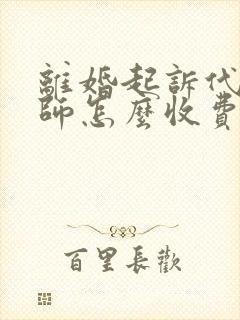 離婚起訴代
師怎麼收費
百里長歡